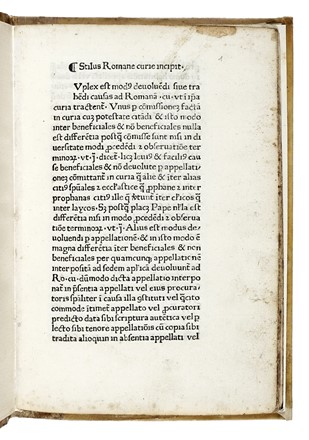 ¶ Stilus Romane curie incipit.
Vplex est modꝰ deuoluēdi siue tra
hēdi causas ad Romanā . cu . vt ī ip̄a
curia tractent̄ . Vnus p cōmissionez factā
in curia cuȝ potestate citādi & isto modo
inter beneficiales & nō beneficiales nulla
est differētia postq̄ cōmisse sunt nisi in di
uersitate modi ꝓcedēdi ⁊ obseruatiōe ter
minoꝝ . vt . j . dicet̄ . licȝ leuiꝰ & faciliꝰ cau
se beneficiales & nō deuolute p appellati
onez cōmittant̄ in curia q̄ alie & iter alias
citiꝰ sp̄uales ⁊ eccl̓astice q̄ ꝓphane ⁊ inter
prophanas citiꝰ ille q̄ v̓tunt̄ iter cl̓icos q̄
inter laycos. Sȝ postq̄ placȝ Pape nl̓la est
differētia nisi in modo ꝓcedēdi ⁊ obserua
tiōe terminoꝝ . vt . j . Alius est modus de
uoluendi p appellationē & in isto modo ē
magna differētia iter beneficiales & non
beneficiales per quamcunqȝ appellatic nē
interpositā ad sedem apl̓icā deuoluunt̄ ad
Ro . cu . dūmodo dicta appellatio interpo
nat̄ in p̄sentia appellati vel eius procura
toris sp̄iliter ī causa illa ꝯstituti vel q̄cito
commode itimet̄ appellato vel ꝓcuratori
predicto data sibi scriptura autētica vel p
lecto sibi tenore appellatiōis cū copia sibi
tradita alioquin in absentia appellati vel